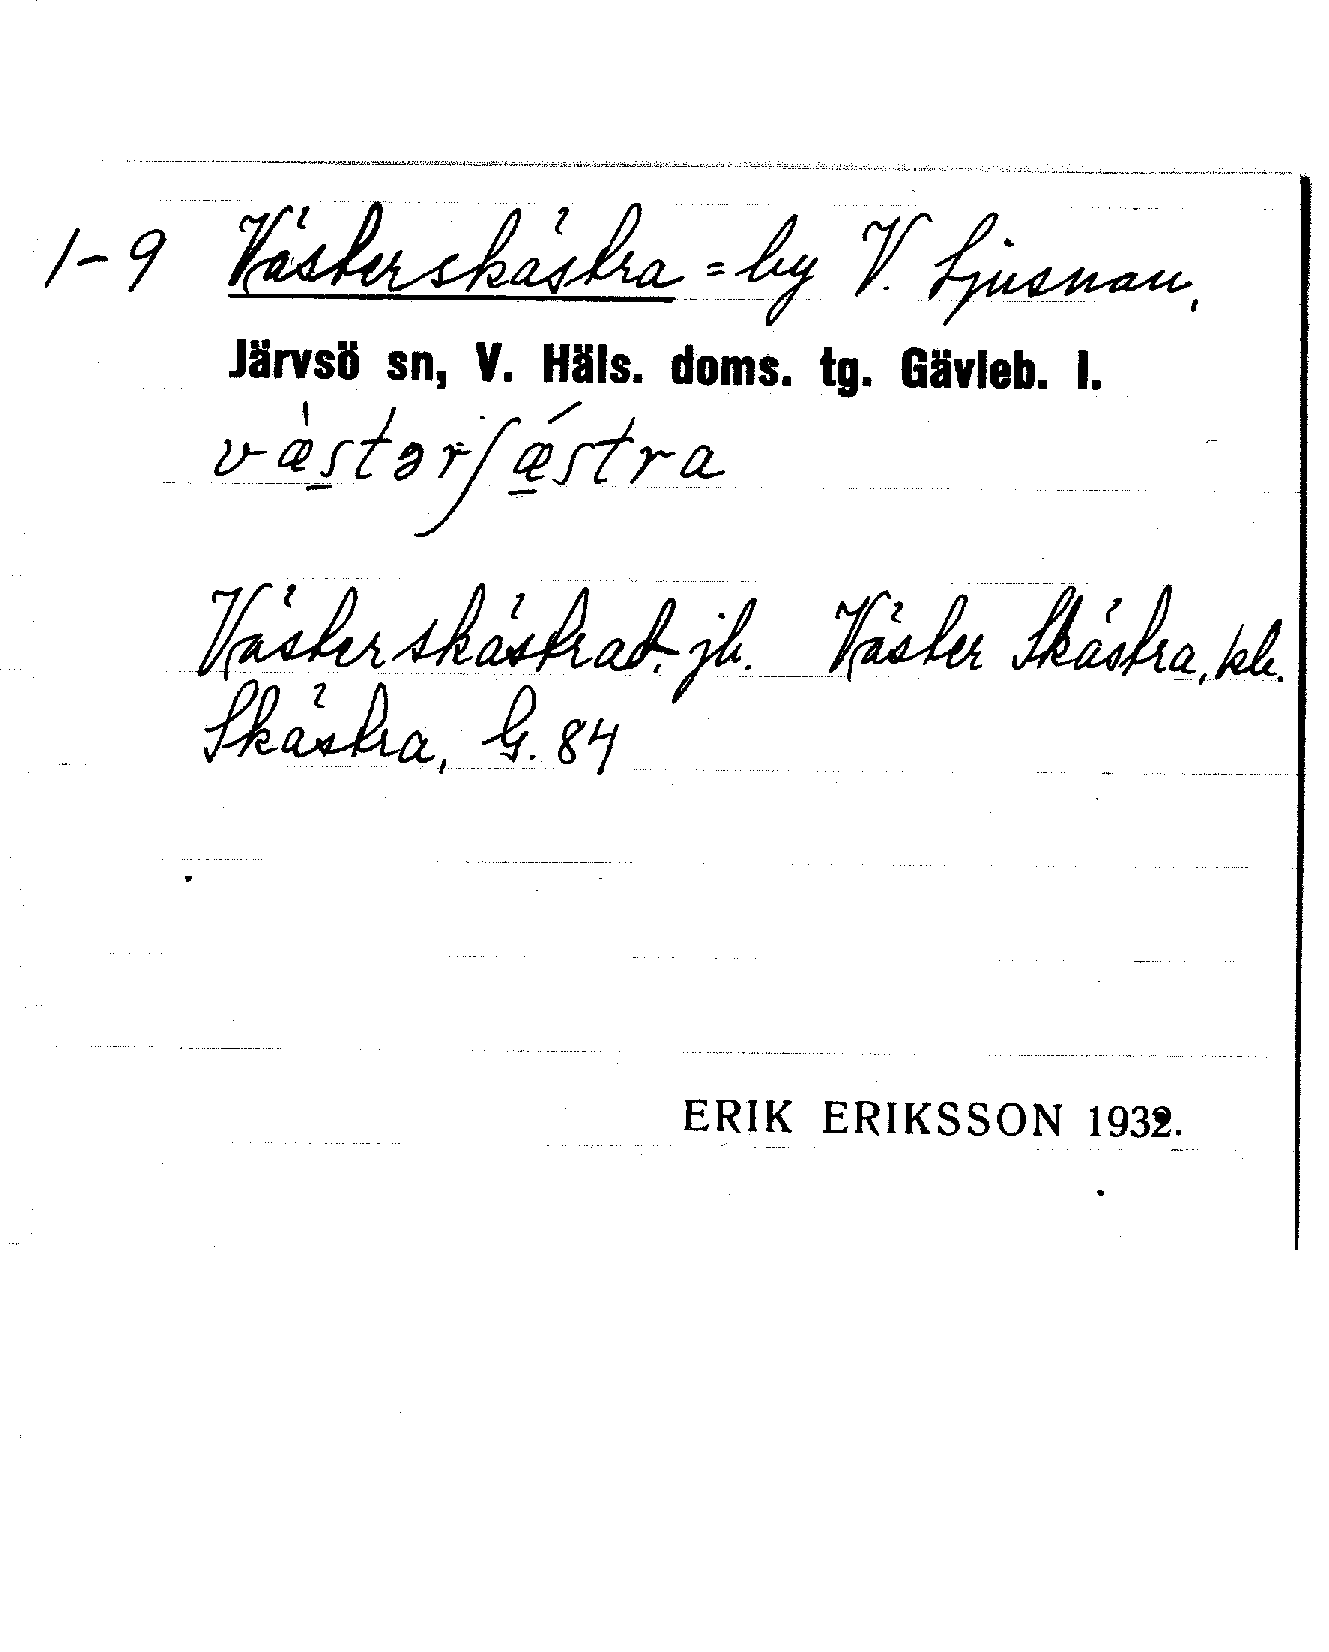 1-9 Västerskästra = by V. Ljusnan,
Järvsö sn, V. Häls. doms. tg. Gävleb. l.
væ̀stərʃǽstra
Västerskästrad. jb. Väster Skästra, kb.
Skästra, G. 84
ERIK ERIKSSON 1932.